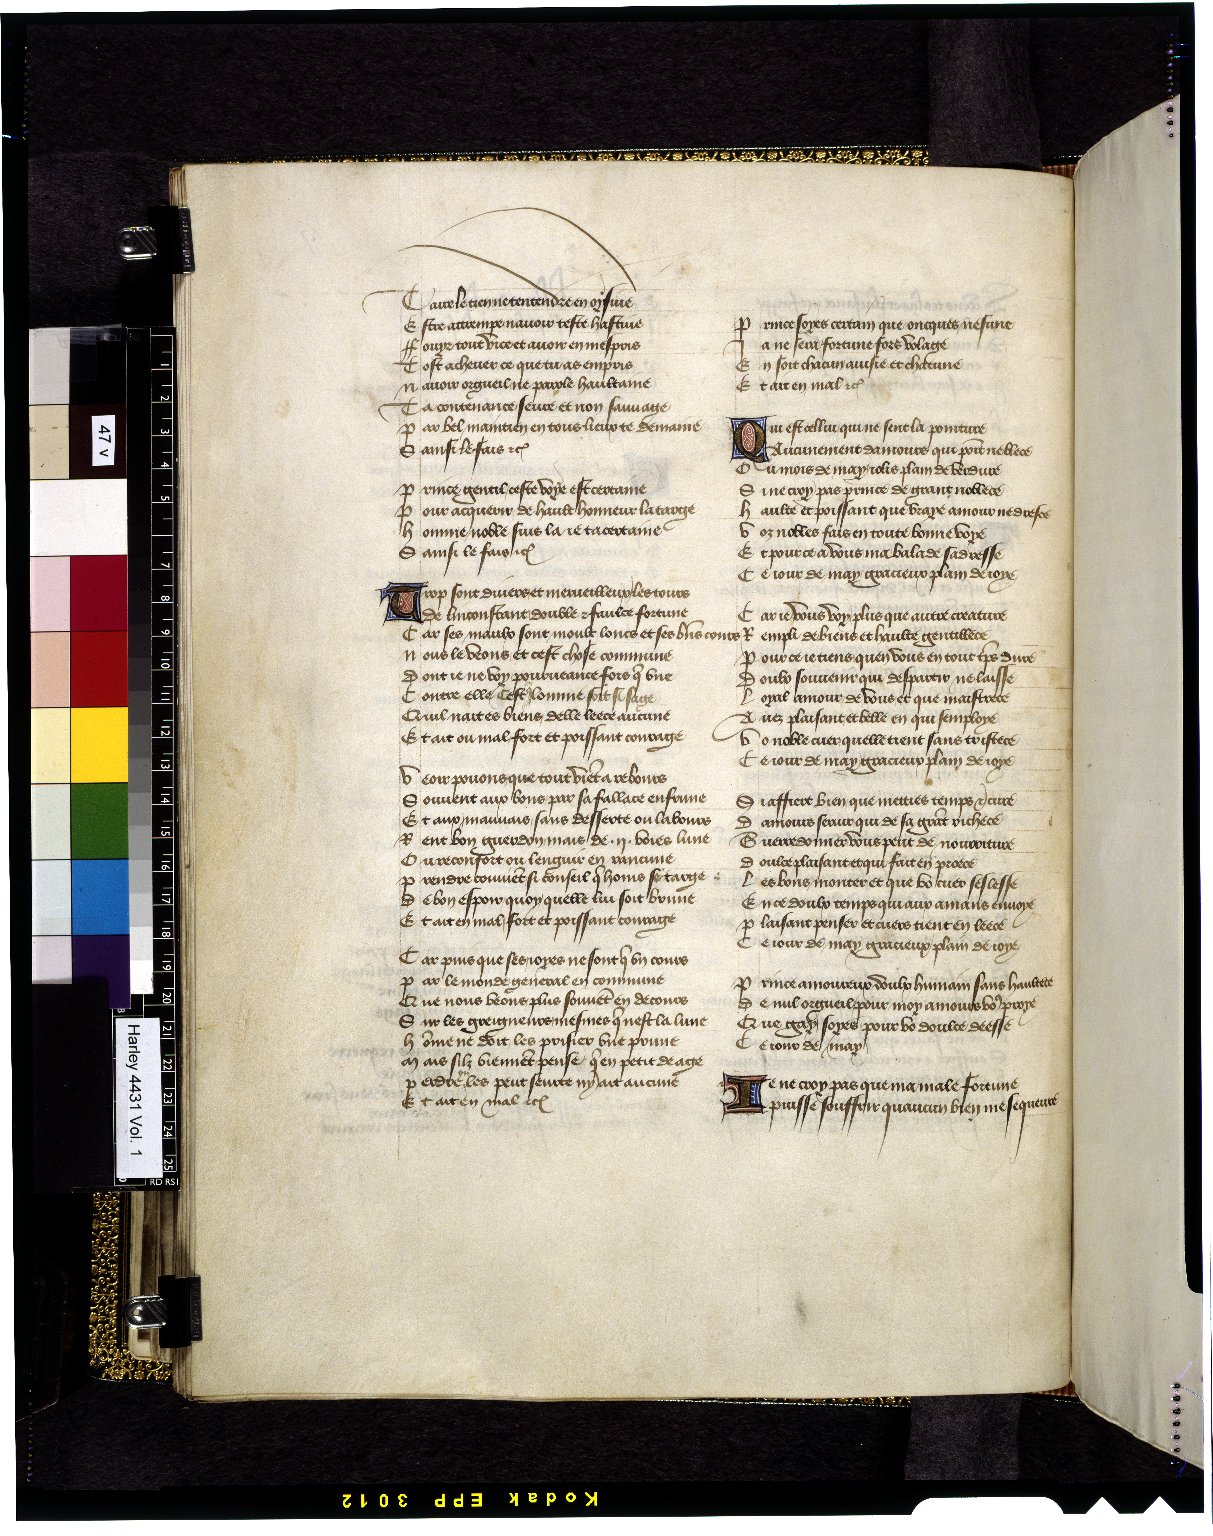 Taire le tienne tentendre en oysiue
Estre attrempe nauoir teste hastiue
Ffouyr tout vice et auoir en mespris
Tost acheuer ce que tu as empris
Nauoir orgueil ne parole haultaine
Ta contenance seure et non sauuage
Par bel maintien en tous lieux te demaine
Sainsi le fais etc
Prince gentil ceste voye est certaine
Pour acquerir de hault honneur la targe
Homme noble suis la ie ta certaine
Sainsi le fais etc
Trop sont diuers et merueilleux les tours
de linconstant double & faulce fortune
Car ses maulx sont moult loncs et ses bns cours
Nous le veons et cest chose commune
Dont ie ne voy pourueance fors q̄ vne
Contre elle Cest q̄ lomme soit si sage
Quil nait es biens delle leece aucune
Et ait ou mal fort et poissant courage
Veoir pouons que tout viēt a rebours
Souuent aux bons par sa fallace enfrune
Et aux mauuais sans desserte ou labours
Rent bon guerdon mais de .ii. voies lune
Ou reconfort ou lenguir en rancune
Prendre couuiēt si conseil q̄ homs se targe
De bon espoir quoy quelle lui soit brune
Et ait en mal fort et poissant courage
Car puis que ses ioyes ne sont q̄ vn cours
Par le monde general en commune
Que nous veons plus souuēt en decours
Sur les greigneurs mesmes q̄ nest la lune
Hōme ne doit les prisier vne prune
Mais silz viennēt pense q̄ en petit de age
Perdre les peut seurte ny ait aucune
Et ait en mal etc
Prince soyes certain que oncques ne fune
Ja ne sera fortune fors volage
En soit chacun auisie et chacune
Et ait en mal etc
Qui est cellui qui ne sent la pointure
Aucunement damours qui point ne blece
Ou mois de may iolis plain de verdure
Si ne croy pas prince de grant noblece
Hault et poissant que vraye amour ne drece
Voz nobles fais en toute bonne voye
Et pour ce a vous ma balade sadresse
Ce iour de may gracieux plain de ioye
Car ie vous voy plus que autre creature
Rempli de biens et haulte gentillece
Pour ce ie tiens quen vous en tout tps dure
Doulx souuenir qui despartir ne laisse
Loyal amour de vous et que maistrece
Auez plaisant et belle en qui semploye
Vo noble cuer quelle tient sans tristece
Ce iour de may gracieux plain de ioye
Si affiert bien que metties temps & cure
Damours seruir qui de sa grāt richece
Guerredonner vous peut de nourriture
Doulce plaisant et qui fait en proece
Les bons monter et que vo cuer seslesse
En ce doulx temps qui aux amans enuoye
Plaisant penser et cuers tient en leece
Ce iour de may gracieux plain de ioye
Prince amoureux doulx humain sans haultece
De nul orgueil pour moy amours vo proye
Que gay soyes pour vo doulce deesse
Ce iour de may
Je ne croy pas que ma male fortune
puisse souffrir quaucun bien me sequeure
47 v
Harley 4431 Vol. 1
Kodak EPP 3012